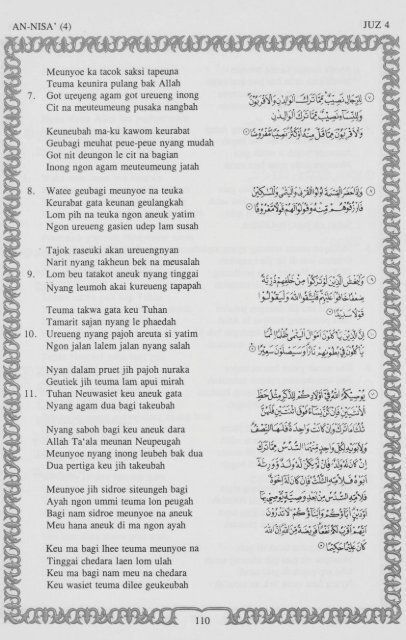 AN-NISA' (4)
JUZ 4
Meunyoe ka tacok saksi tapeuna
Teuma keunira pulang bak Allah
7. Got ureueng agam got ureueng inong
Cit na meuteumeung pusaka nangbah
Keuneubah ma-ku kawom keurabat
Geubagi meuhat peue-peue nyang mudah
Got nit deungon le cit na bagian
Inong ngon agam meuteumeung jatah
8. Watee geubagi meunyoe na teuka
Keurabat gata keunan geulangkah
Lom pih na teuka ngon aneuk yatim
Ngon ureueng gasien udep lam susah
Tajok raseuki akan ureuengnyan
Narit nyang takheun bek na meusalah
9. Lom beu tatakot aneuk nyang tinggai
Nyang leumoh akai kureueng tapapah
Teuma takwa gata keu Tuhan
Tamarit sajan nyang le phaedah
10. Ureueng nyang pajoh areuta si yatim
Ngon jalan lalem jalan nyang salah
Nyan dalam pruet jih pajoh nuraka
Geutiek jih teuma lam apui mirah
11. Tuhan Neuwasiet keu aneuk gata
Nyang agam dua bagi takeubah
Nyang saboh bagi keu aneuk dara
Allah Ta'ala meunan Neupeugah
Meunyoe nyang inong leubeh bak dua
Dua pertiga keu jih takeubah
Meunyoe jih sidroe siteungeh bagi
Ayah ngon ummi teuma lon peugah
Bagi nam sidroe meunyoe na aneuk
Meu hana aneuk di ma ngon ayah
Keu ma bagi lhee teuma meunyoe na
Tinggai chedara laen lom ulah
Keu ma bagi nam meu na chedara
Keu wasiet teuma dilee geukeubah
لِلرِّجَالِ نَصِيبٌ مِمَّا تَرَكَ الْوَالِدَانِ وَالْأَقْرَبُونَ
وَلِلنِّسَاءِ نَصِيبٌ مِمَّا تَرَكَ الْوَالِدَانِ
وَالْأَقْرَبُونَ مِمَّا قَلَّ مِنْهُ أَوْ كَثُرَ نَصِيبًا مَفْرُوضًا
وَإِذَا حَضَرَ الْقِسْمَةَ أُولُو الْقُرْبَى وَالْيَتَامَى وَالْمَسَاكِينُ
فَارْزُقُوهُمْ مِنْهُ وَقُولُوا لَهُمْ قَوْلًا مَعْرُوفًا
وَلْيَخْشَ الَّذِينَ لَوْ تَرَكُوا مِنْ خَلْفِهِمْ ذُرِّيَّةً
ضِعَافًا خَافُوا عَلَيْهِمْ فَلْيَتَّقُوا اللَّهَ وَلْيَقُولُوا
قَوْلًا سَدِيدًا
إِنَّ الَّذِينَ يَأْكُلُونَ أَمْوَالَ الْيَتَامَى ظُلْمًا إِنَّمَا
يَأْكُلُونَ فِي بُطُونِهِمْ نَارًا وَسَيَصْلَوْنَ سَعِيرًا
يُوصِيكُمُ اللَّهُ فِي أَوْلَادِكُمْ لِلذَّكَرِ مِثْلُ حَظِّ
الْأُنْثَيَيْنِ فَإِنْ كُنَّ نِسَاءً فَوْقَ اثْنَتَيْنِ فَلَهُنَّ
ثُلُثَا مَا تَرَكَ وَإِنْ كَانَتْ وَاحِدَةً فَلَهَا النِّصْفُ
وَلِأَبَوَيْهِ لِكُلِّ وَاحِدٍ مِنْهُمَا السُّدُسُ مِمَّا تَرَكَ
إِنْ كَانَ لَهُ وَلَدٌ فَإِنْ لَمْ يَكُنْ لَهُ وَلَدٌ وَوَرِثَهُ
أَبَوَاهُ فَلِأُمِّهِ الثُّلُثُ فَإِنْ كَانَ لَهُ إِخْوَةٌ
فَلِأُمِّهِ السُّدُسُ مِنْ بَعْدِ وَصِيَّةٍ يُوصِي بِهَا
أَوْ دَيْنٍ آبَاؤُكُمْ وَأَبْنَاؤُكُمْ لَا تَدْرُونَ
أَيُّهُمْ أَقْرَبُ لَكُمْ نَفْعًا فَرِيضَةً مِنَ اللَّهِ إِنَّ اللَّهَ
كَانَ عَلِيمًا حَكِيمًا
110